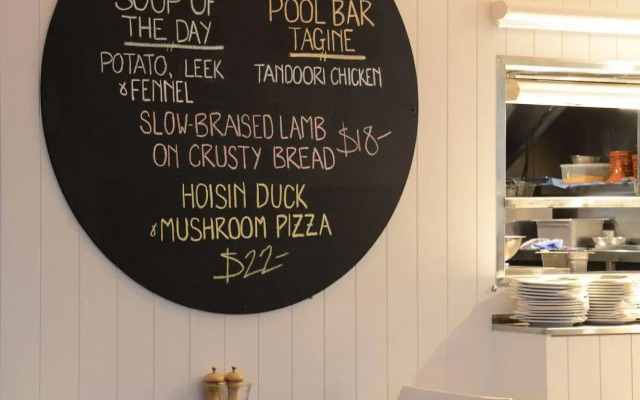 SOUP OF
THE DAY
POTATO, LEEK
& FENNEL
POOL BAR
TAGINE
TANDOORI CHICKEN
SLOW-BRAISED LAMB
ON CRUSTY BREAD $18-
HOISIN DUCK
& MUSHROOM PIZZA
$22-